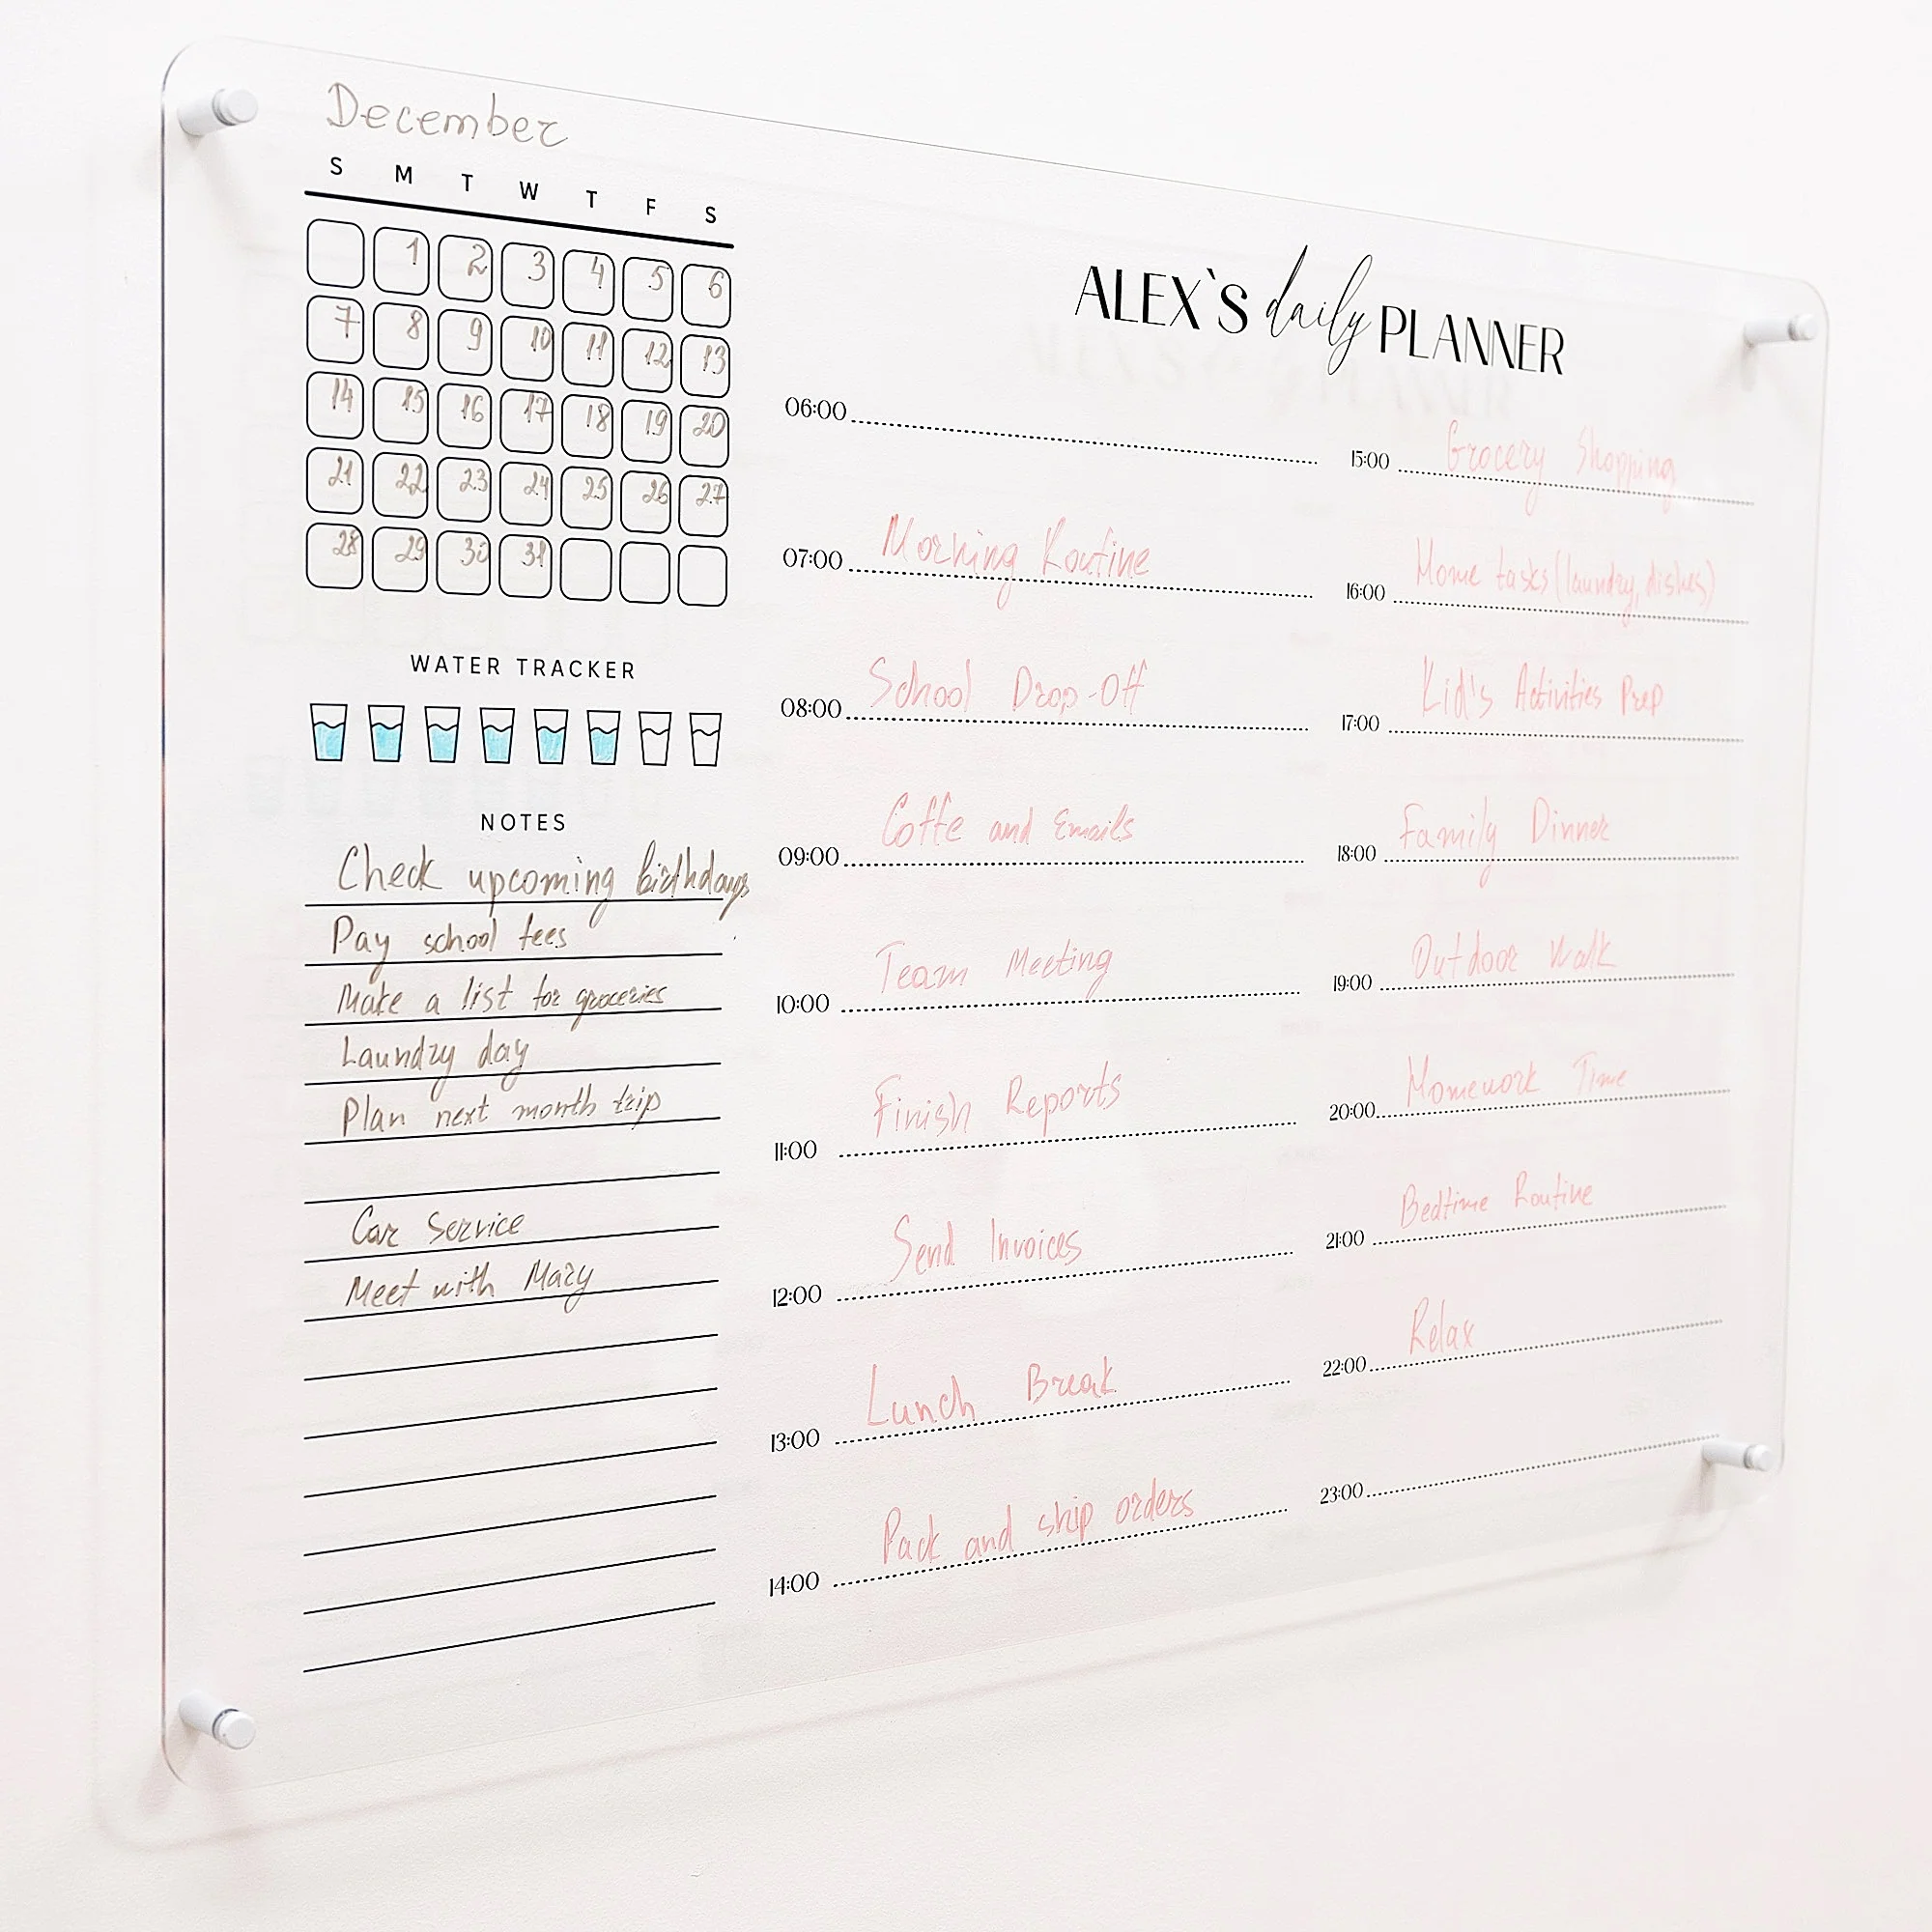 December
S M T W T F S
1 2 3 4 5 6
7 8 9 10 11 12 13
14 15 16 17 18 19 20
21 22 23 24 25 26 27
28 29 30 31
WATER TRACKER
NOTES
Check upcoming birthdays
Pay school fees
Make a list for groceries
Laundry day
Plan next month trip
Car Service
Meet with Mary
ALEX`S daily PLANNER
06:00
07:00 Morning Routine
08:00 School Drop-Off
09:00 Coffe and Emails
10:00 Team Meeting
11:00 Finish Reports
12:00 Send Invoices
13:00 Lunch Break
14:00 Pack and ship orders
15:00 Grocery Shopping
16:00 Home tasks (laundry, dishes)
17:00 Kid's Activities Prep
18:00 Family Dinner
19:00 Outdoor Walk
20:00 Homework Time
21:00 Bedtime Routine
22:00 Relax
23:00